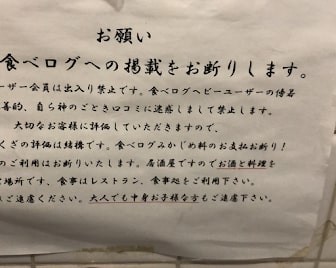 お願い
食べログへの掲載をお断りします。
ーザー会員は出入り禁止です。食べログヘビーユーザーの傍若
善的、自ら神のごとき口コミに迷惑しまして禁止します。
大切なお客様に評価していただきますので、
くざの評価は結構です。食べログみかじめ料のお支払お断り!
のご利用はお断りいたします。居酒屋ですのでお酒と料理を
場所です、食事はレストラン、食事処をご利用下さい。
ご遠慮ください。大人でも中身お子様な方もご遠慮下さい。